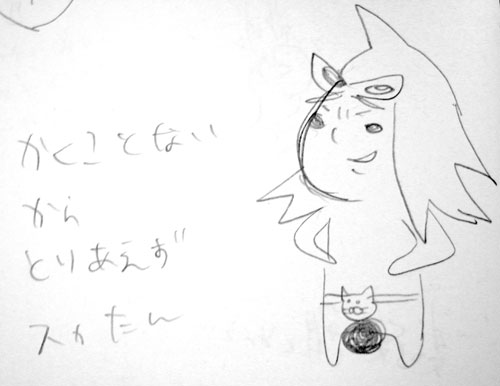 かくことない
から
とりあえず
スカたん